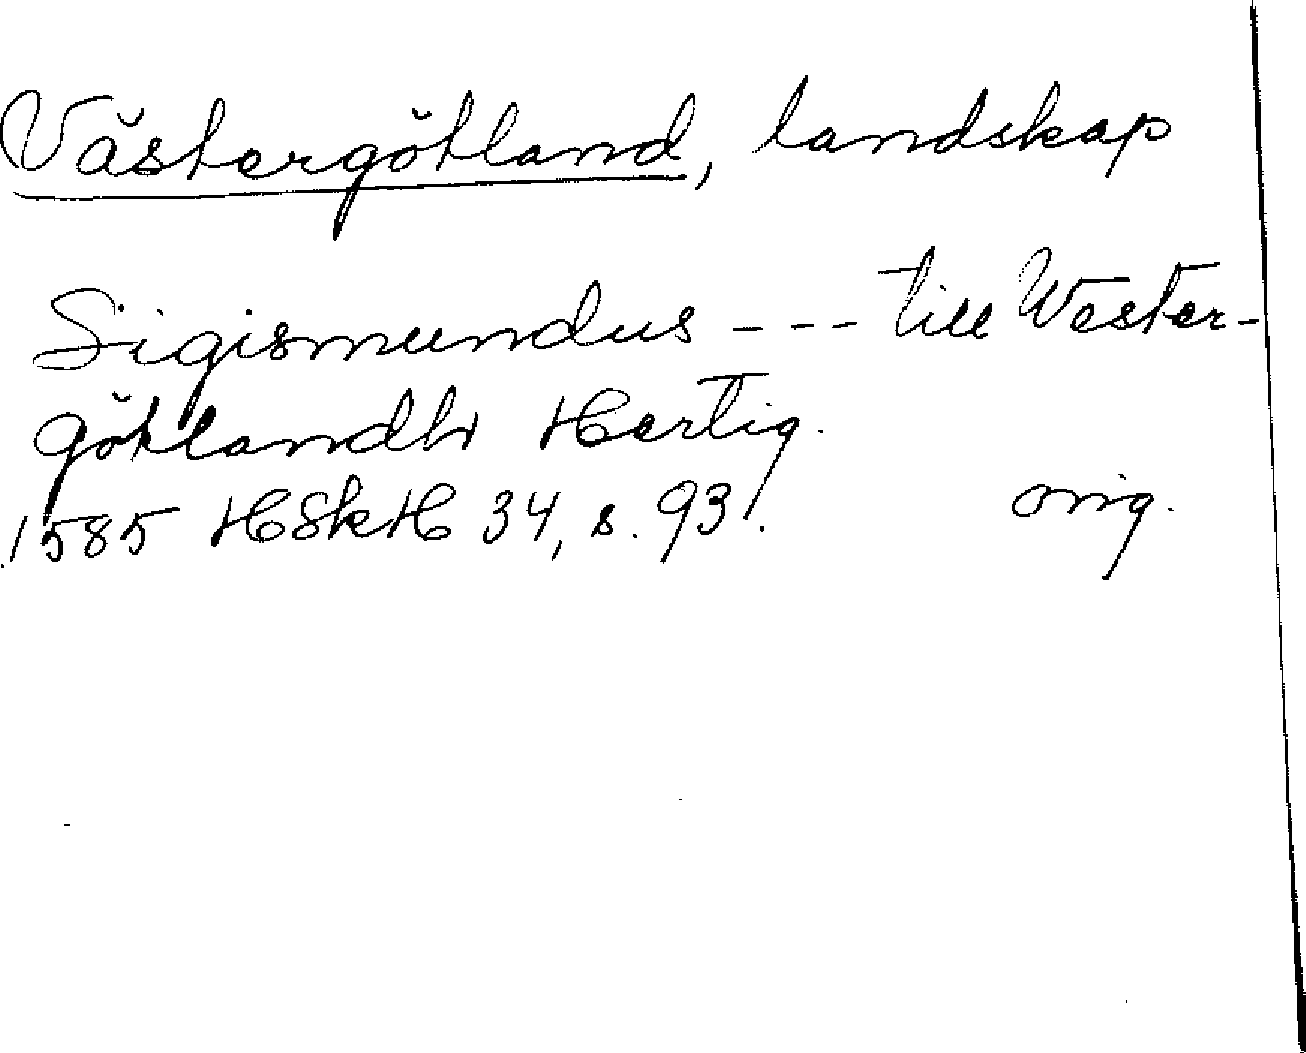 Västergötland, landskap
Sigismundus --- till Wester-
götlandh Hertig.
1585 HSkH 34, s. 93.
orig.